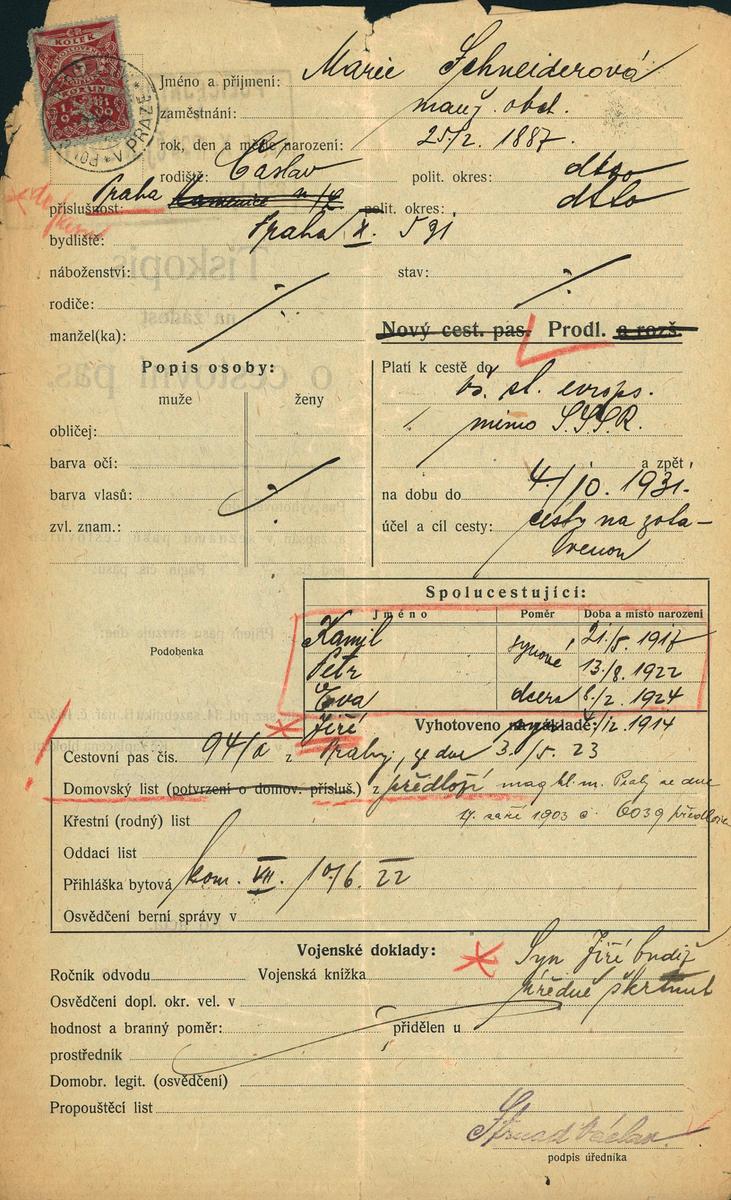 KOLEK
V PRAZE
Jméno a příjmení: Marie Schneiderová
zaměstnání: manž. obch.
rok, den a měsíc narození: 25/2. 1887.
rodiště: Čáslav polit. okres: dtto
příslušnost: Praha Kamenice n/L polit. okres: dtto
bydliště: Praha X. 591
náboženství: stav:
rodiče:
manžel(ka):
Nový cest. pas. Prodl. a rozš.
Popis osoby:
muže ženy
obličej:
barva očí:
barva vlasů:
zvl. znam.:
Platí k cestě do
vš. st. evrops.
mimo S.S.S.R.
a zpět
na dobu do 4./10. 1931.
účel a cíl cesty: cesty na zota-
venou
Podobenka
Spolucestující:
Jméno Poměr Doba a místo narození
Kamil synové 21./8. 1917
Petr 13./8. 1922
Eva dcera 8./2. 1924
Jiří 4./2. 1914
Vyhotoveno na základě:
Cestovní pas čís. 94/a z Prahy, ze dne 3./5. 23
Domovský list (potvrzení o domov. přísluš.) z předloží mag hl. m. Prahy ze dne
17. září 1903 č. 6039 předložen
Křestní (rodný) list
Oddací list
Přihláška bytová kom. VII. 10/6. 22
Osvědčení berní správy v
Vojenské doklady:
Syn Jiří budiž
úředně škrtnut
Ročník odvodu Vojenská knížka
Osvědčení dopl. okr. vel. v
hodnost a branný poměr: přidělen u
prostředník
Domobr. legit. (osvědčení)
Propouštěcí list
Strnad Václav
podpis úředníka